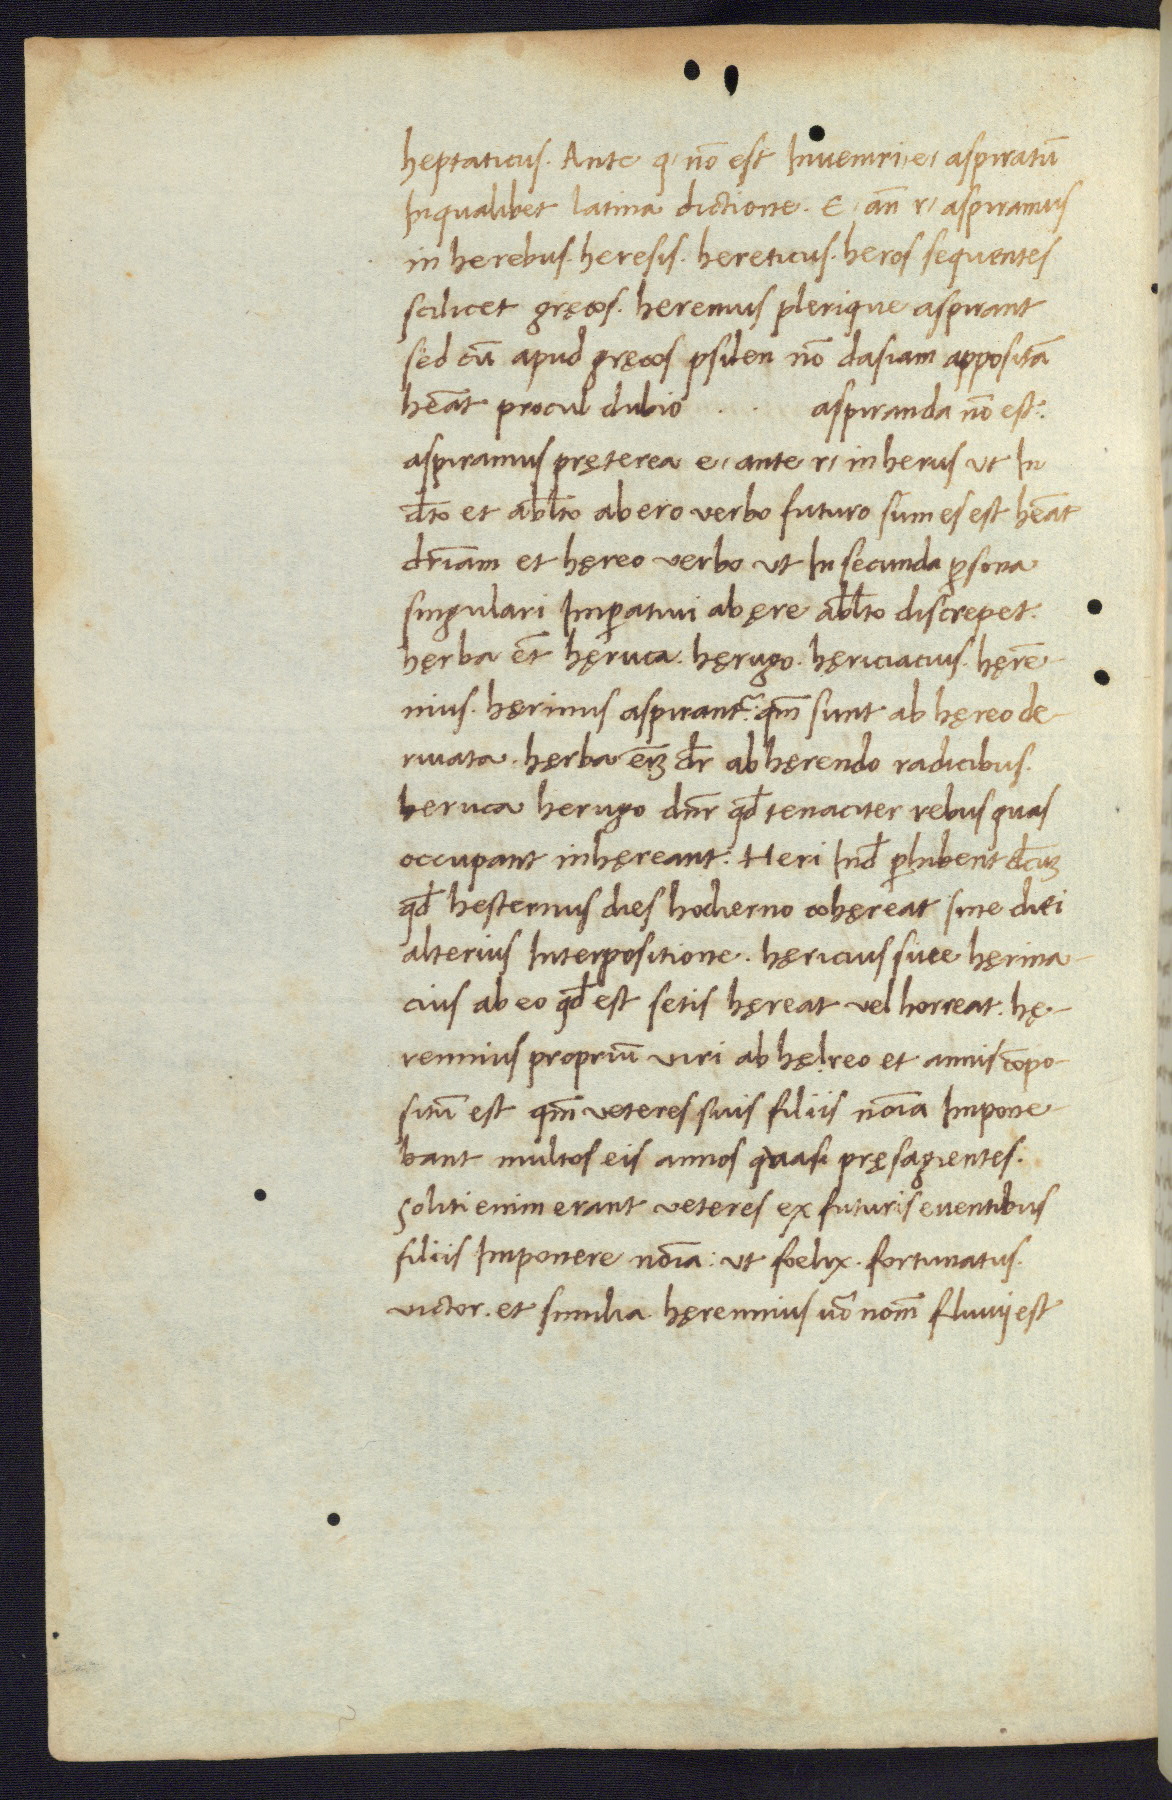 heptaticus. Ante q, nō est Inueniri, e, aspiratū
Inqualibet latina dictione. E, an̄ r, aspiramus
in herebus. heresis. hereticus. heros sequentes
scilicet gręcos. heremus plerique aspirant
sed cū apud gręcos psilen nō dasiam appositā
hēat procul dubio . . aspiranda nō est:.
aspiramus pręterea e, ante r, in herus ut In
d̄to et abl̄to ab ero verbo futuro sum es est hēat
dr̄iam et hęreo verbo ut In secunda p̱sona
singulari Imp̱atiui ab ęre abl̄to discrepet.
hęrba ēt hęruca. hęrugo. hęriciacius. hęrē-
nius. hęrimus aspirant᷑. qm̄ sunt ab hęreo de-
riuata. hęrba em̄ꝫ dr̄ ab hęrendo radicibus.
heruca herugo dn̄r qđ tenaciter rebus quas
occupant inhęreant. Heri Inđ p̱hibent dc̄uꝫ
qđ hesternus dies hodierno cohęreat sine diei
alterius Interpositione. hęricius siue hęrina-
cius ab eo qđ est setis hęreat vel horreat. hę-
rennius propriū viri ab hę|reo et annis cōpo-
situ᷑ est qm̄ veteres suis filiis noı̄a Impone-
bant multos eis annos quasi pręsagientes.
Soliti enim erant veteres ex futuris euentibus
filiis Imponere noı̄a: ut foelix. fortunatus.
victor. et similia. hęrennius u̅o nom̄ fluuij est